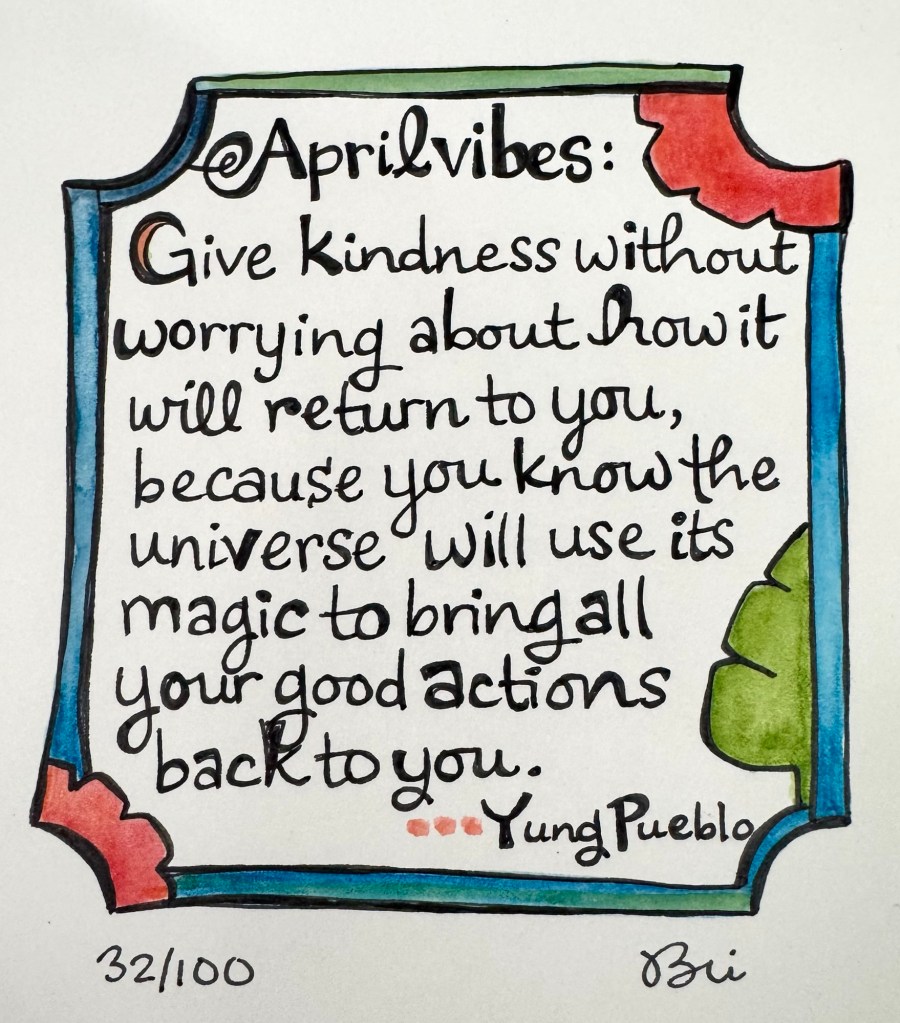 @Aprilvibes:
Give kindness without
worrying about how it
will return to you,
because you know the
universe will use its
magic to bring all
your good actions
back to you.
Yung Pueblo
32/100
Bri